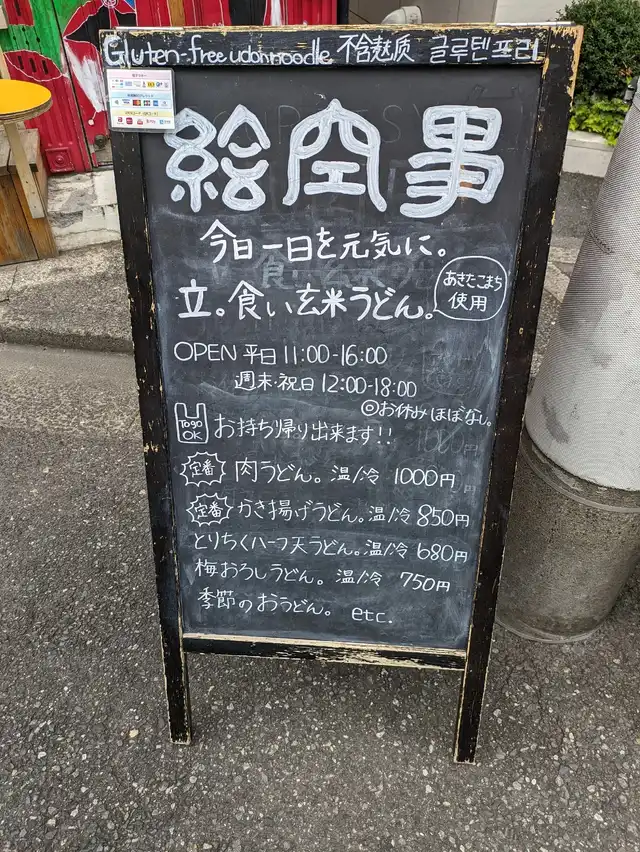 Gluten-free udon noodle 不含麸质 글루텐프리
絵空事
今日一日を元気に。
立。食い玄米うどん。
あきたこまち
使用
OPEN 平日 11:00-16:00
週末・祝日 12:00-18:00
◎お休みほぼなし。
To go
OK
お持ち帰り出来ます!!
定番 肉うどん。温/冷 1000円
定番 かき揚げうどん。温/冷 850円
とりちくハーフ天うどん。温/冷 680円
梅おろしうどん。温/冷 750円
季節のおうどん。 etc.